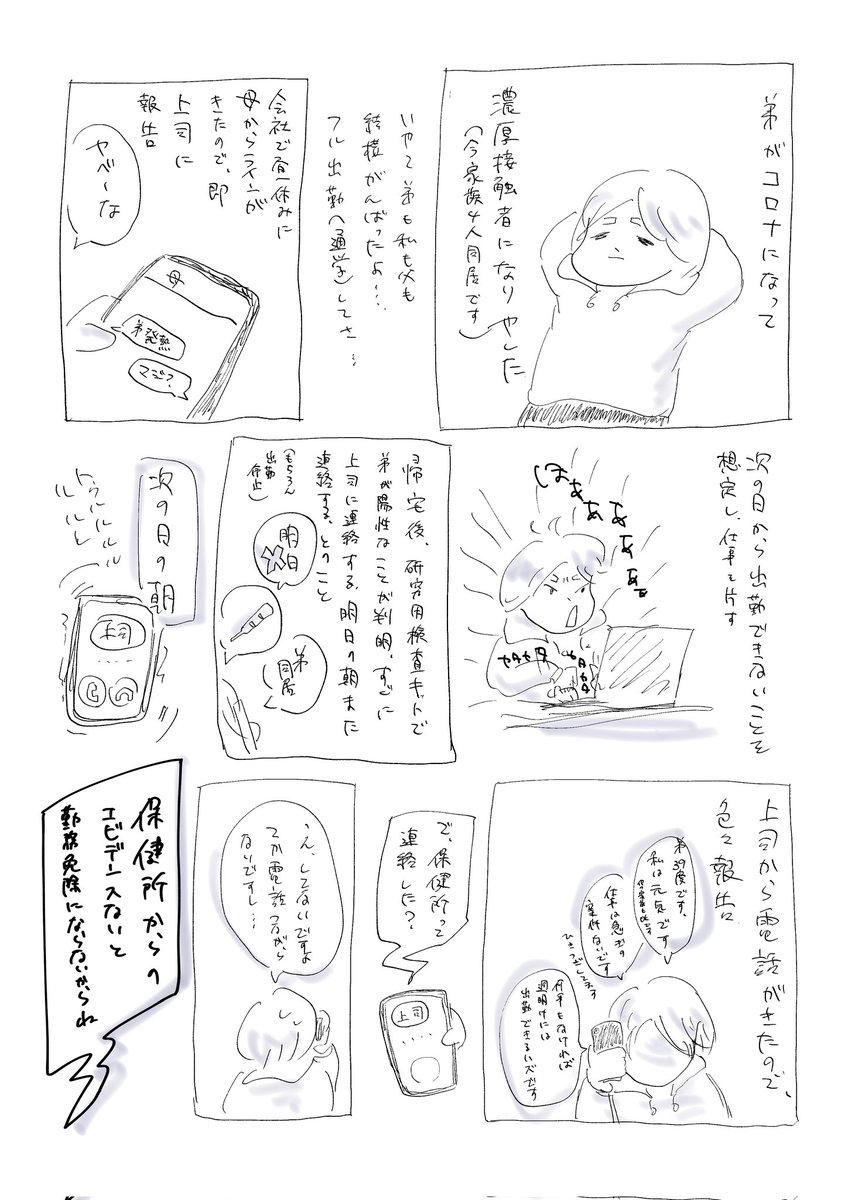 弟がコロナになって
濃厚接触者になりやした
(今家族4人同居です)
いやで弟も私も父も
結構がんばったよ…
フル出勤(通学)してさ…
会社で昼休みに
母からラインが
きたので、即
上司に
報告
ヤベーな
母
弟発熱
マジ?
次の日から出勤できないことを
想定し、仕事を片す
はぁあああぁ
カタカタ
カタカタ
帰宅後、研究用検査キットで
弟が陽性なことが判明。すぐに
上司に連絡する。明日の朝また
連絡する、とのこと
(もちろん
出勤
停止)
明日
弟
同居
次の日の朝
トゥルルルル
ルルル
上司
上司から電話がきたので、
色々報告
弟39度です、
私は元気です
仕事は急ぎの
案件ないです
何事もなければ
週明けには
出勤できるハズです
で、保健所って
連絡した?
上司
いえ、してないですよ
てか電話つながら
ないですし…
保健所からの
エビデンスないと
勤務免除にならないからね